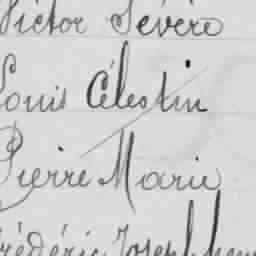 Victor Sévère
Louis Célestin
Pierre Marie
Frédéric Joseph